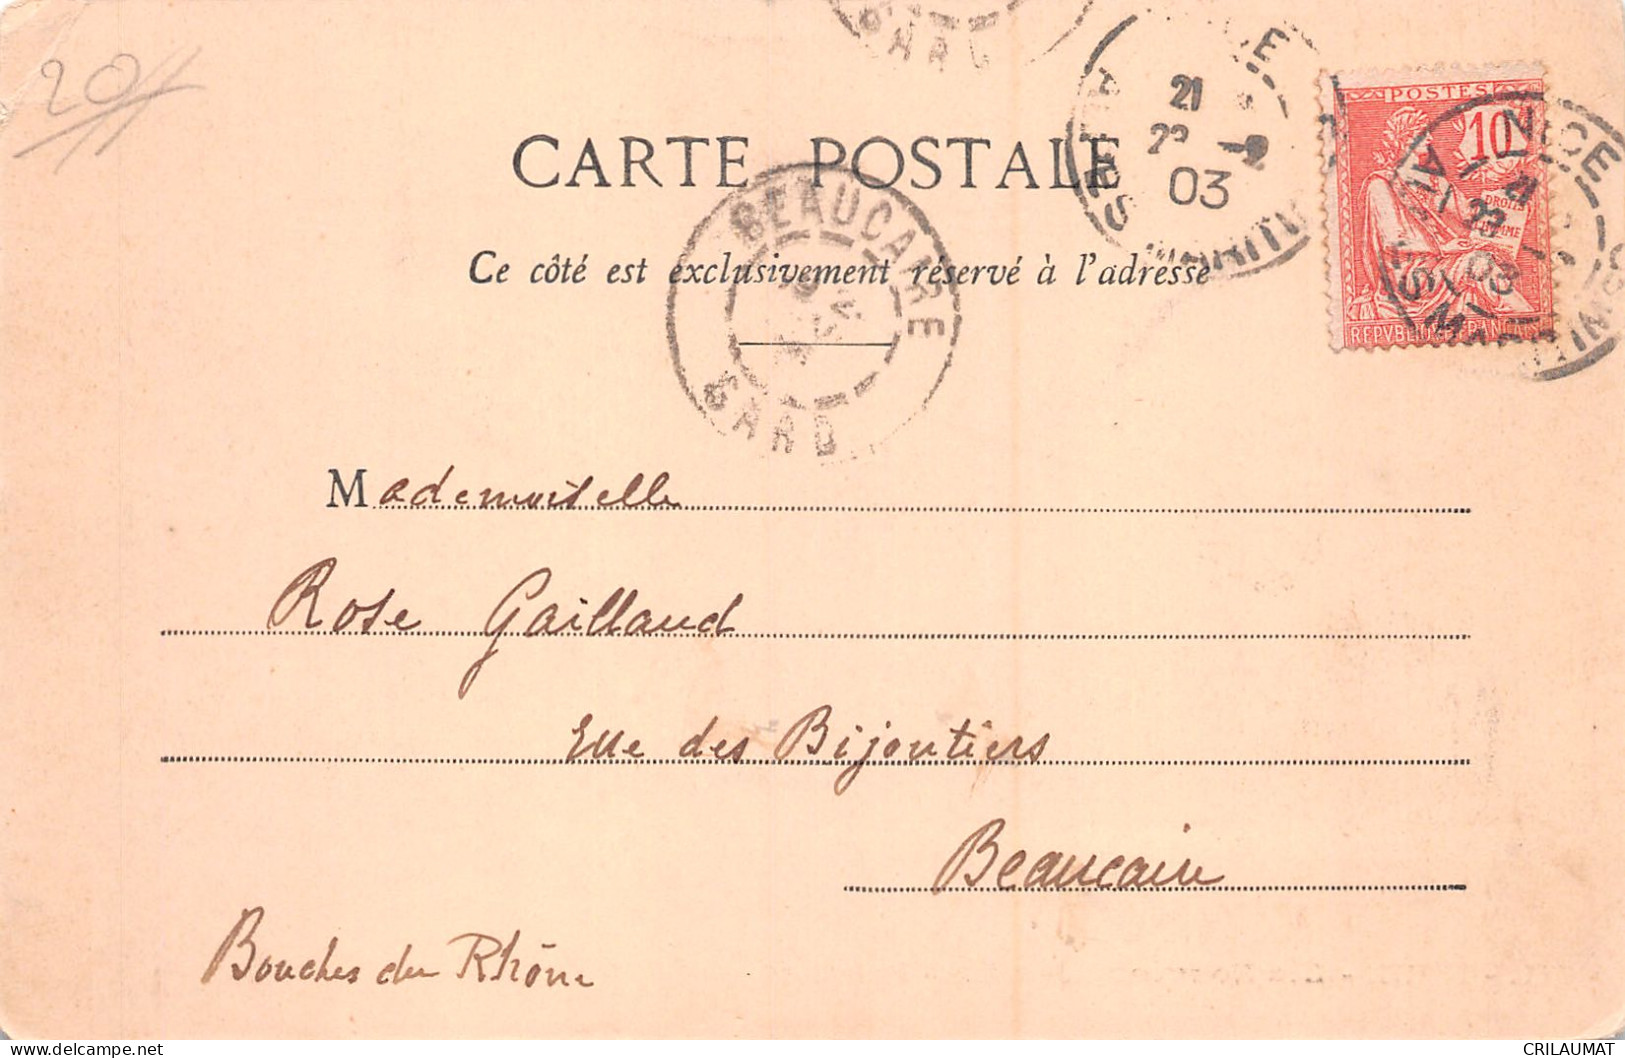 20
GARD
NICE
21
03
ALPES MARITIMES
POSTES
10
DROITS
HOMME
REPVBLIQVE FRANÇAISE
NICE
CARTE POSTALE
BEAUCAIRE
GARD
Ce côté est exclusivement réservé à l'adresse
Mademoiselle
Rose Gaillaud
Rue des Bijoutiers
Beaucaire
Bouches du Rhône
CRILAUMAT